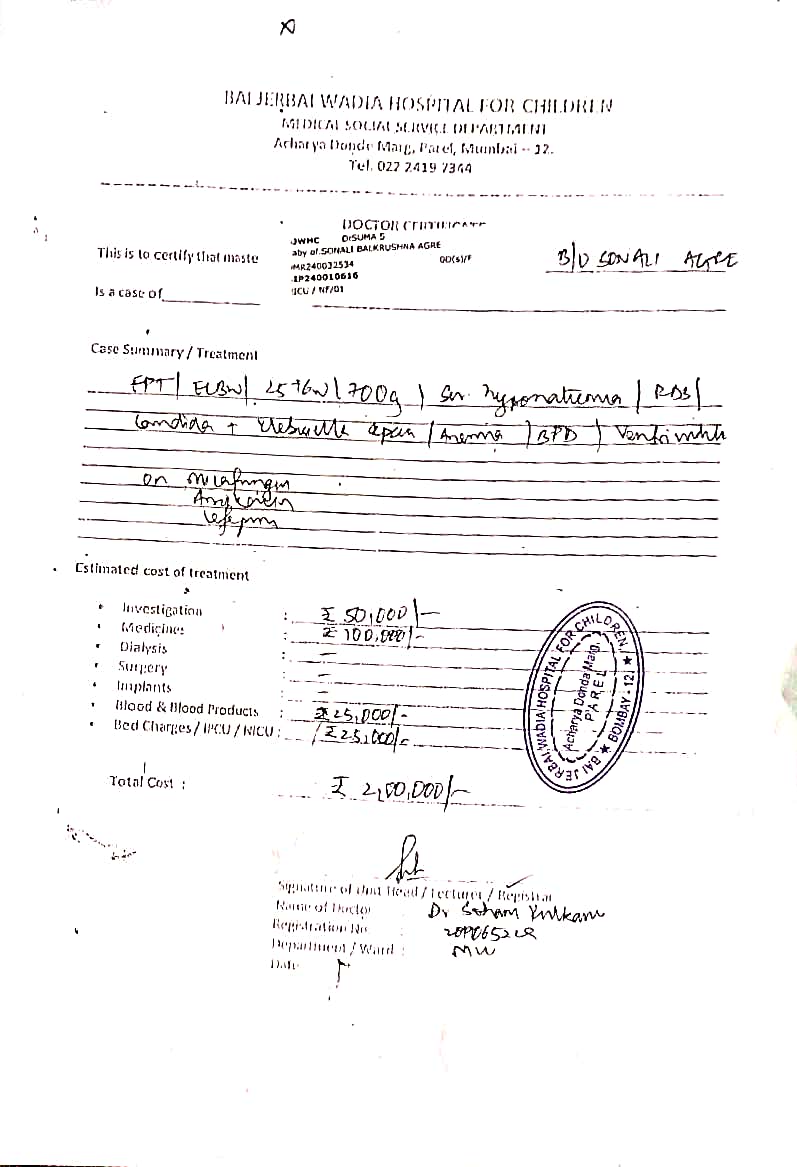 BAI JERBAI WADIA HOSPITAL FOR CHILDREN
MEDICAL SOCIAL SERVICE DEPARTMENT
Acharya Donde Marg, Parel, Mumbai - 12.
Tel. 022 2419 7344
DOCTOR CERTIFICATE
JWHC DrSUMA S
aby of.SONALI BALKRUSHNA AGRE
MR240032534 00(s)/F
IP240010616
IICU / NF/01
This is to certify that maste
B/O SONALI AGRE
Is a case of
Case Summary / Treatment
EPT / ELBW / 25+6W / 700g / Sev. hyponatremia / RDS /
Candida + Klebsiella sepsis / Anemia / BPD /
on Micafungin
Amikacin
Cefepime
Estimated cost of treatment
Investigation : ₹ 50,000/-
Medicines : ₹ 100,000/-
Dialysis : -
Surgery : -
Implants : -
Blood & Blood Products : ₹ 25,000/-
Bed Charges / IPCU / NICU : ₹ 25,000/-
BAI JERBAI WADIA HOSPITAL FOR CHILDREN,
Acharya Donda Marg,
PAREL
BOMBAY - 12
Total Cost : ₹ 2,00,000/-
Signature of Unit Head / Lecturer / Registrar
Name of Doctor Dr Soham Kulkarni
Registration No :
Department / Ward :
Date